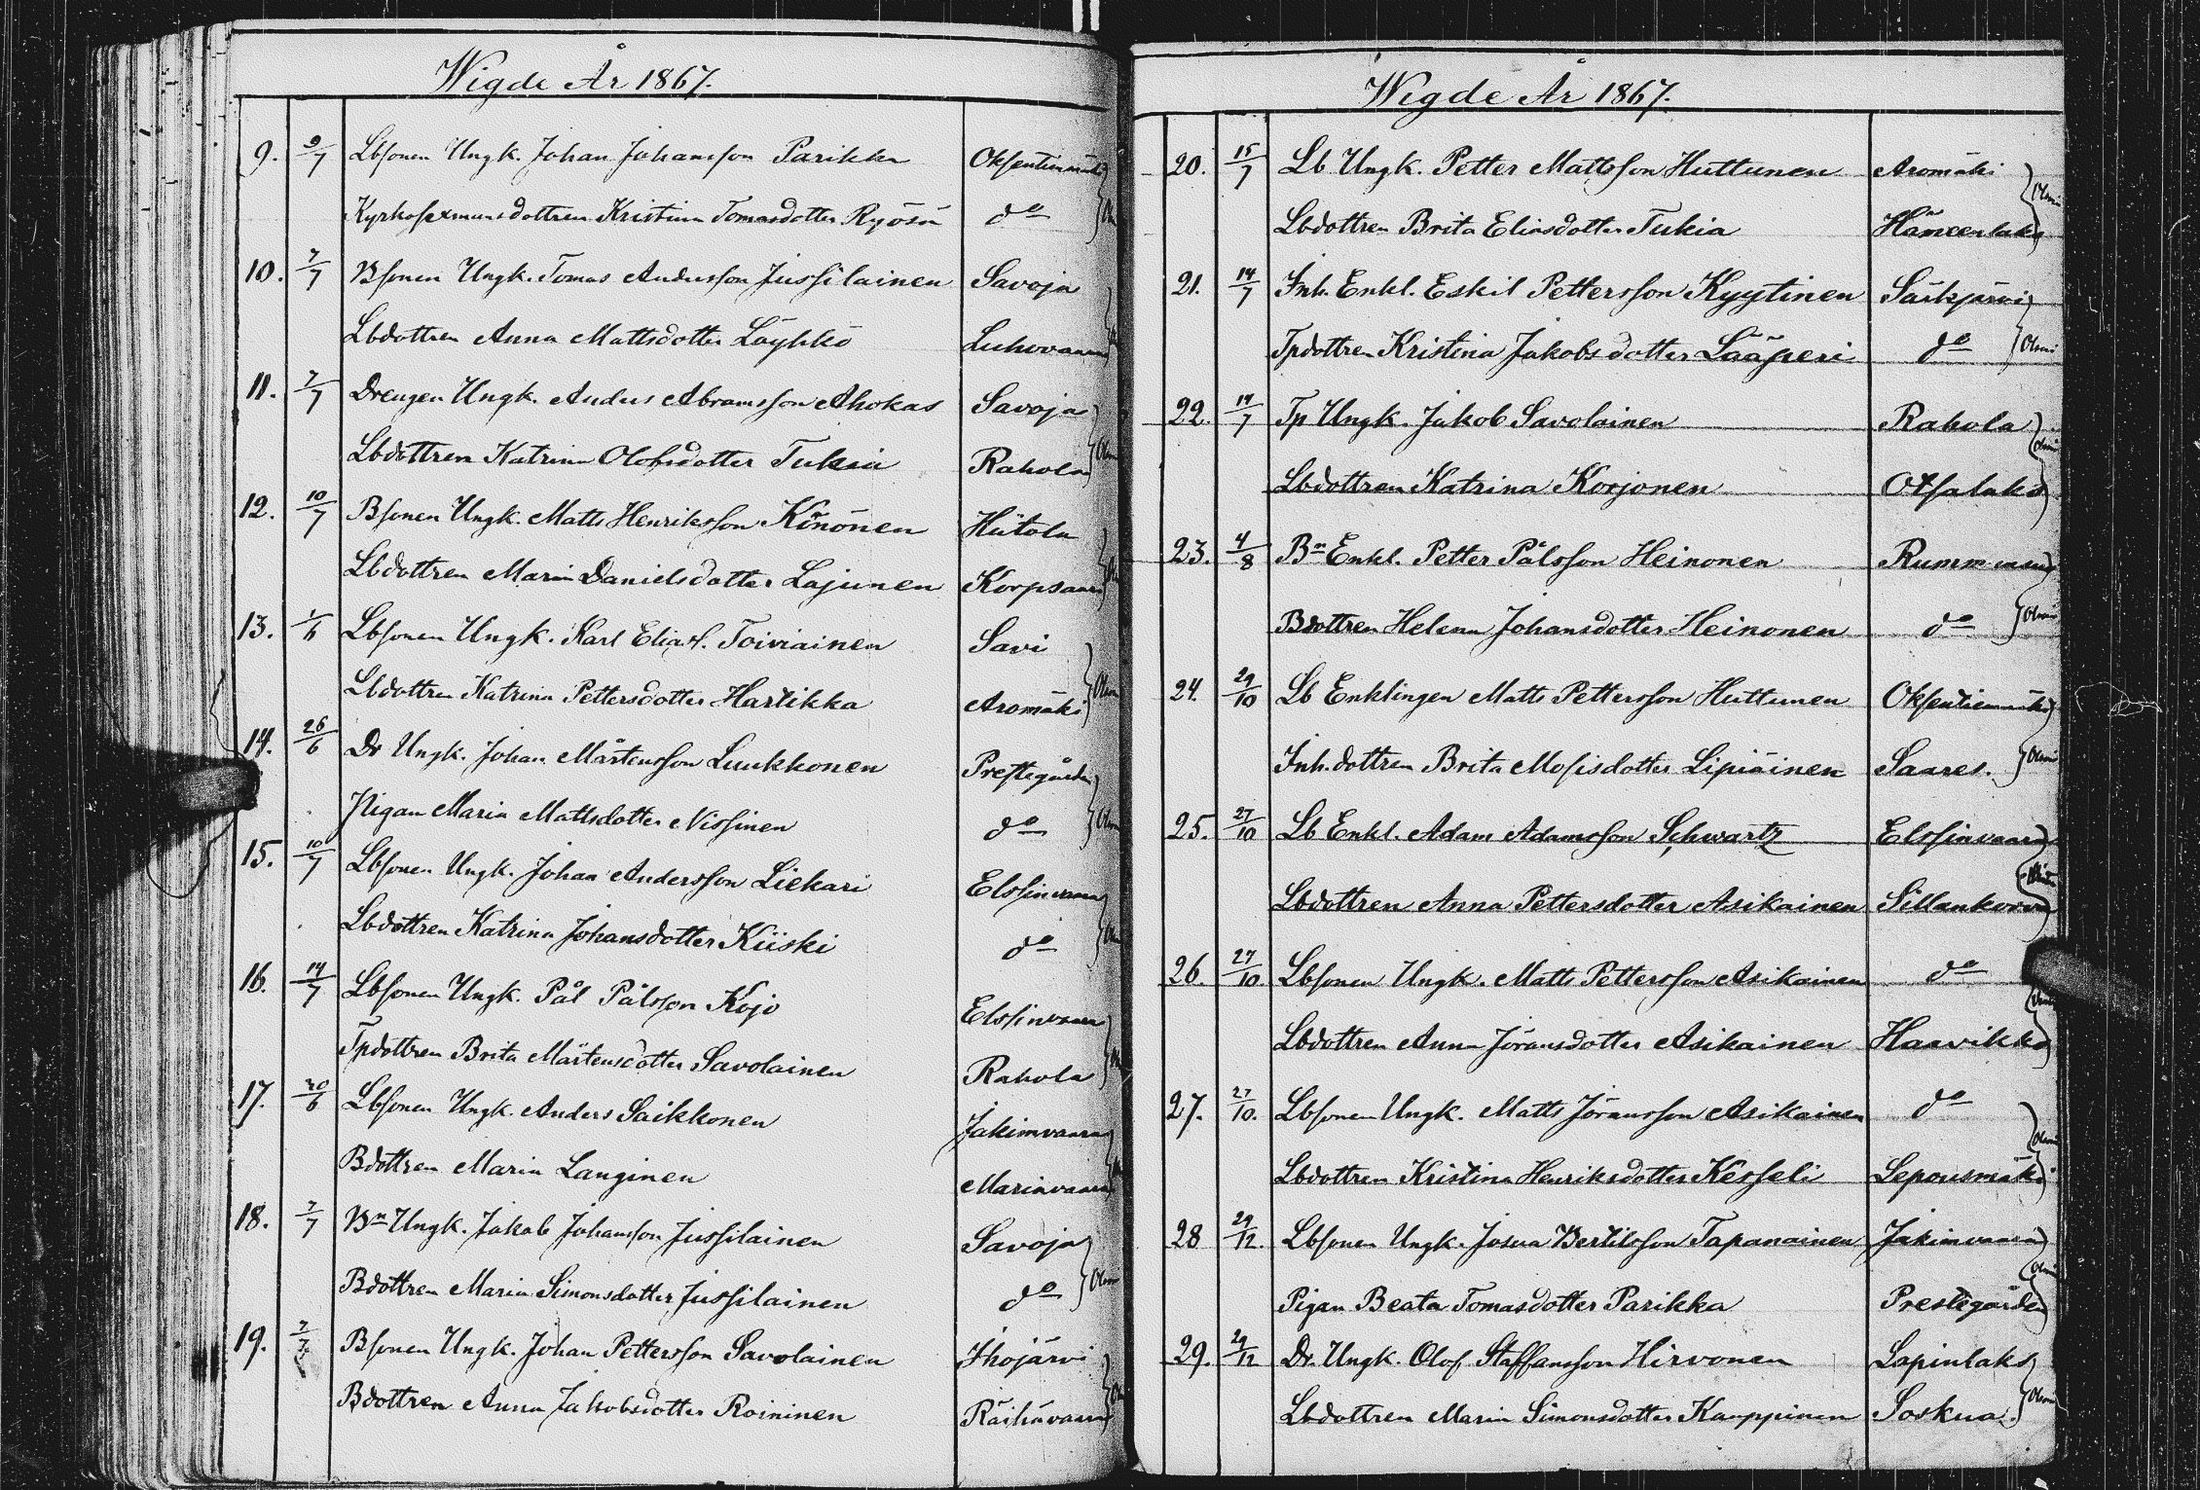 Wigde År 1867.
9. 9/7 Lbsonen Ungk. Johan Johansson Parikka Oksentiemäki
Kyrkosexmansdottren Kristina Tomasdotter Ryösä do
10. 7/7 Bsonen Ungk. Tomas Andersson Jussilainen Savoja
Lbdottren Anna Mattsdotter Löyhkö Luhovaara
11. 7/7 Drengen Ungk. Anders Abramsson Ahokas Savoja
Lbdottren Katrina Olofsdotter Tukia Rahola
12. 10/7 Bsonen Ungk. Matts Henriksson Kinonen Hiitola
Lbdottren Maria Danielsdotter Lajunen Korpsaari
13. 1/6 Lbsonen Ungk. Karl Elias. Toiviainen Savi
Lbdottren Katrina Pettersdotter Hartikka Aromäki
14. 26/6 Dr Ungk. Johan Mårtensson Luukkonen Prestegården
Pigan Maria Mattsdotter Nissinen do
15. 10/7 Lbsonen Ungk. Johan Andersson Liekari Elossinvaara
Lbdottren Katrina Johansdotter Kiiski do
16. 14/7 Lbsonen Ungk. Pål Pålsson Kojo Elossinvaara
Tpdottren Brita Mårtensdotter Savolainen Rahola
17. 20/6 Lbsonen Ungk. Anders Saikkonen Jakimvaara
Bdottren Maria Langinen Marinvaara
18. 7/7 Bn Ungk. Jakob Johansson Jussilainen Savoja
Bdottren Maria Simonsdotter Jussilainen do
19. 7/7 Bsonen Ungk. Johan Pettersson Savolainen Ihojärvi
Bdottren Anna Jakobsdotter Roininen Räihävaara
Wigde År 1867.
20. 15/7 Lb Ungk. Petter Mattsson Huttunen Aromäki
Lbdottren Brita Eliasdotter Tukia
21. 14/7 Inh. Enkl. Eskil Pettersson Kyytinen Särkjärvi
Tpdottren Kristina Jakobsdotter Lääperi do Olmi
22. 14/7 Tp Ungk. Jakob Savolainen Rahola
Lbdottren Katrina Korjonen Otsalaks
23. 4/8 Bn Enkl. Petter Pålsson Heinonen
Bdottren Helena Johansdotter Heinonen do Olmi
24. 29/10 Lb Enklingen Matts Pettersson Huttunen Oksentiemäki
Inh. dottren Brita Mosisdotter Lipiäinen Saares. Olmi
25. 27/10 Lb Enkl. Adam Adamsson Schwartz Elossinvaara
Lbdottren Anna Pettersdotter Asikainen Sillankorva
26. 27/10. Lbsonen Ungk. Matts Pettersson Asikainen do
Lbdottren Anna Jöransdotter Asikainen Haavikko
27. 27/10. Lbsonen Ungk. Matts Jöransson Asikainen do
Lbdottren Kristina Henriksdotter Kesseli Lepousmäki
28 29/12. Lbsonen Ungk. Josua Bertilsson Tapanainen Jakimvaara
Pigan Beata Tomasdotter Parikka Prestegården
29. 29/12 Dr. Ungk. Olof Staffansson Hirvonen Lapinlaks
Lbdottren Maria Simonsdotter Kauppinen Soskua. Olmi